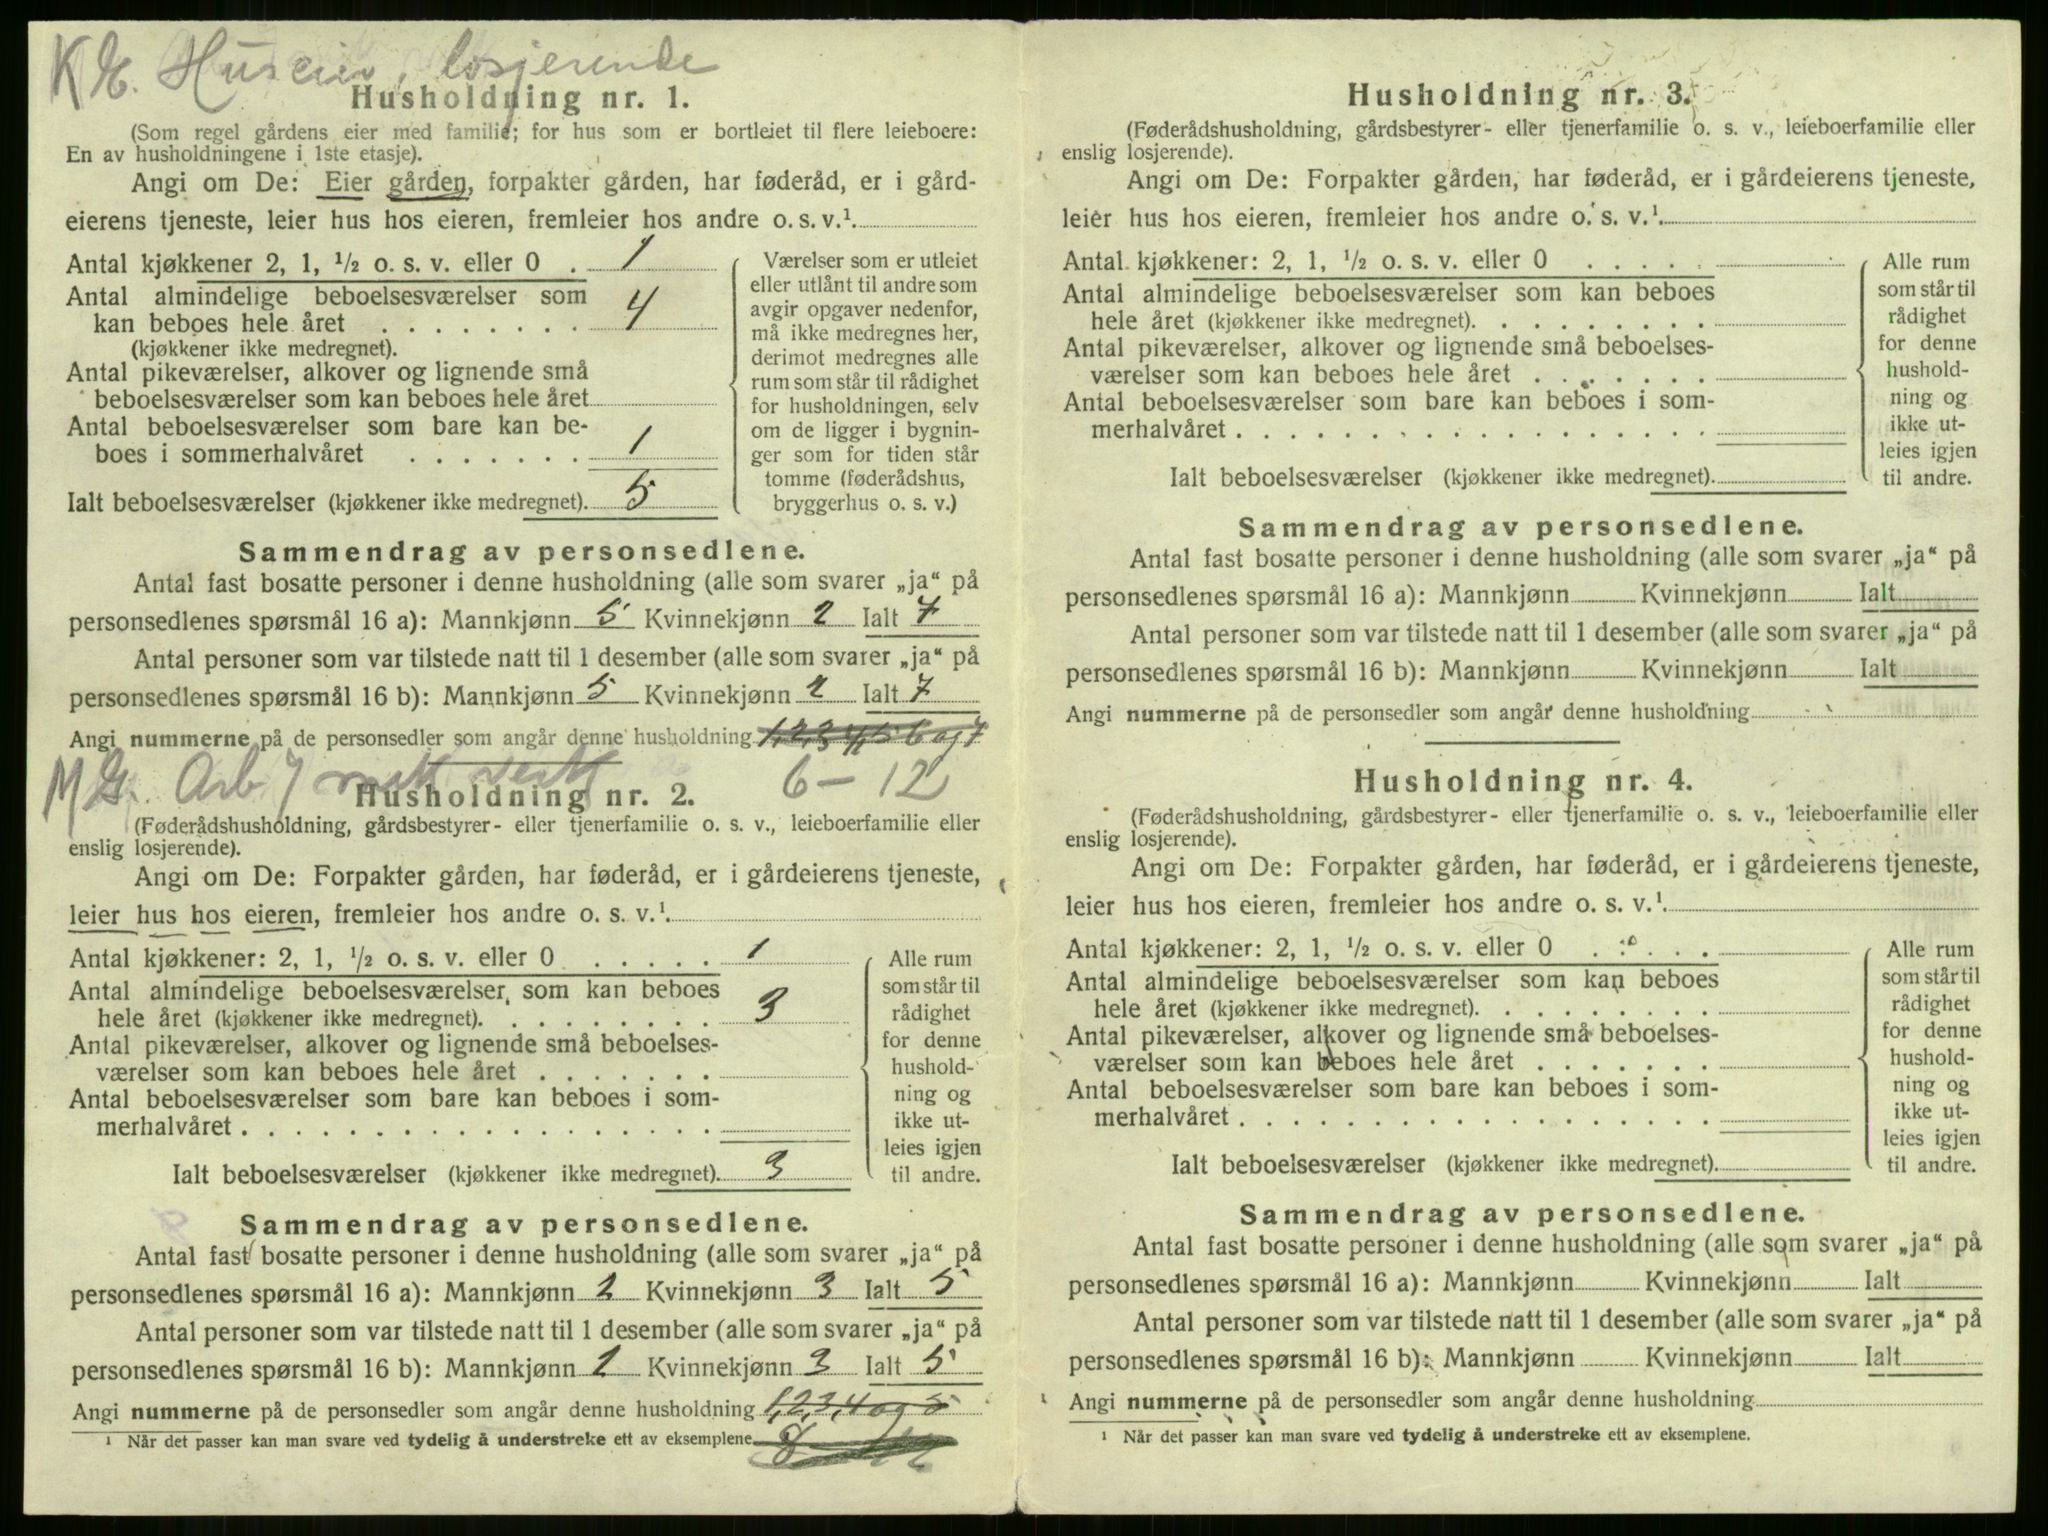 K.E. Huseier, losjerende
Husholdning nr. 1.
(Som regel gårdens eier med familie; for hus som er bortleiet til flere leieboere:
En av husholdningene i 1ste etasje).
Angi om De: Eier gården, forpakter gården, har føderåd, er i gård-
eierens tjeneste, leier hus hos eieren, fremleier hos andre o. s. v.¹
Antal kjøkkener 2, 1, ½ o. s. v. eller 0 . 1
Antal almindelige beboelsesværelser som
kan beboes hele året . . . . . . . . 4
(kjøkkener ikke medregnet).
Antal pikeværelser, alkover og lignende små
beboelsesværelser som kan beboes hele året
Antal beboelsesværelser som bare kan be-
boes i sommerhalvåret . . . . . . . 1
Ialt beboelsesværelser (kjøkkener ikke medregnet). 5
Værelser som er utleiet
eller utlånt til andre som
avgir opgaver nedenfor,
må ikke medregnes her,
derimot medregnes alle
rum som står til rådighet
for husholdningen, selv
om de ligger i bygnin-
ger som for tiden står
tomme (føderådshus,
bryggerhus o. s. v.)
Sammendrag av personsedlene.
Antal fast bosatte personer i denne husholdning (alle som svarer „ja“ på
personsedlenes spørsmål 16 a): Mannkjønn 5 Kvinnekjønn 2 Ialt 7
Antal personer som var tilstede natt til 1 desember (alle som svarer „ja“ på
personsedlenes spørsmål 16 b): Mannkjønn 5 Kvinnekjønn 2 Ialt 7
Angi nummerne på de personsedler som angår denne husholdning 1,2,3,4,5 6 og 7
6 – 12
M.G. Arb
Husholdning nr. 2.
(Føderådshusholdning, gårdsbestyrer- eller tjenerfamilie o. s. v., leieboerfamilie eller
enslig losjerende).
Angi om De: Forpakter gården, har føderåd, er i gårdeierens tjeneste,
leier hus hos eieren, fremleier hos andre o. s. v.¹
Antal kjøkkener: 2, 1, ½ o. s. v. eller 0 . . . . . 1
Antal almindelige beboelsesværelser som kan beboes
hele året (kjøkkener ikke medregnet). . . . . . . . 3
Antal pikeværelser, alkover og lignende små beboelses-
værelser som kan beboes hele året . . . . . . .
Antal beboelsesværelser som bare kan beboes i som-
merhalvåret . . . . . . . . . . . . . . . . . .
Ialt beboelsesværelser (kjøkkener ikke medregnet). 3
Alle rum
som står til
rådighet
for denne
hushold-
ning og
ikke ut-
leies igjen
til andre.
Sammendrag av personsedlene.
Antal fast bosatte personer i denne husholdning (alle som svarer „ja“ på
personsedlenes spørsmål 16 a): Mannkjønn 2 Kvinnekjønn 3 Ialt 5
Antal personer som var tilstede natt til 1 desember (alle som svarer „ja“ på
personsedlenes spørsmål 16 b): Mannkjønn 2 Kvinnekjønn 3 Ialt 5
Angi nummerne på de personsedler som angår denne husholdning 1,2,3,4 og 5
¹ Når det passer kan man svare ved tydelig å understreke ett av eksemplene. 8
Husholdning nr. 3.
(Føderådshusholdning, gårdsbestyrer- eller tjenerfamilie o. s. v., leieboerfamilie eller
enslig losjerende).
Angi om De: Forpakter gården, har føderåd, er i gårdeierens tjeneste,
leier hus hos eieren, fremleier hos andre o. s. v.¹
Antal kjøkkener: 2, 1, ½ o. s. v. eller 0 . . . . .
Antal almindelige beboelsesværelser som kan beboes
hele året (kjøkkener ikke medregnet). . . . . . . .
Antal pikeværelser, alkover og lignende små beboelses-
værelser som kan beboes hele året . . . . . . .
Antal beboelsesværelser som bare kan beboes i som-
merhalvåret . . . . . . . . . . . . . . . . . .
Ialt beboelsesværelser (kjøkkener ikke medregnet).
Alle rum
som står til
rådighet
for denne
hushold-
ning og
ikke ut-
leies igjen
til andre.
Sammendrag av personsedlene.
Antal fast bosatte personer i denne husholdning (alle som svarer „ja“ på
personsedlenes spørsmål 16 a): Mannkjønn Kvinnekjønn Ialt
Antal personer som var tilstede natt til 1 desember (alle som svarer „ja“ på
personsedlenes spørsmål 16 b): Mannkjønn Kvinnekjønn Ialt
Angi nummerne på de personsedler som angår denne husholdning
Husholdning nr. 4.
(Føderådshusholdning, gårdsbestyrer- eller tjenerfamilie o. s. v., leieboerfamilie eller
enslig losjerende).
Angi om De: Forpakter gården, har føderåd, er i gårdeierens tjeneste,
leier hus hos eieren, fremleier hos andre o. s. v.¹
Antal kjøkkener: 2, 1, ½ o. s. v. eller 0 . . . .
Antal almindelige beboelsesværelser som kan beboes
hele året (kjøkkener ikke medregnet). . . . . . . .
Antal pikeværelser, alkover og lignende små beboelses-
værelser som kan beboes hele året . . . . . . .
Antal beboelsesværelser som bare kan beboes i som-
merhalvåret . . . . . . . . . . . . . . . . . .
Ialt beboelsesværelser (kjøkkener ikke medregnet).
Alle rum
som står til
rådighet
for denne
hushold-
ning og
ikke ut-
leies igjen
til andre.
Sammendrag av personsedlene.
Antal fast bosatte personer i denne husholdning (alle som svarer „ja“ på
personsedlenes spørsmål 16 a): Mannkjønn Kvinnekjønn Ialt
Antal personer som var tilstede natt til 1 desember (alle som svarer „ja“ på
personsedlenes spørsmål 16 b): Mannkjønn Kvinnekjønn Ialt
Angi nummerne på de personsedler som angår denne husholdning
¹ Når det passer kan man svare ved tydelig å understreke ett av eksemplene.